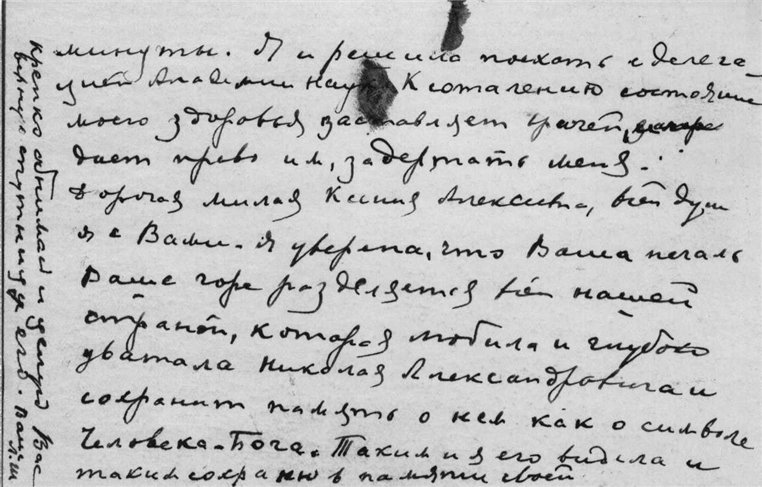 минуты. Я и решила поехать с делега-
цией Академии наук. К сожалению состояние
моего здоровья заставляет врачей,
дает право им, задержать меня.
Дорогая милая Ксения Алексеевна, всей душой
я с Вами. Я уверена, что Ваша печаль
Ваше горе разделяется всей нашей
страной, которая любила и глубоко
уважала Николая Александровича и
сохранит память о нем как о символе
Человека-Бога. Таким и я его видела и
таким сохраню в памяти своей
Крепко обнимаю и целую Вас
спутницу его. Ваша